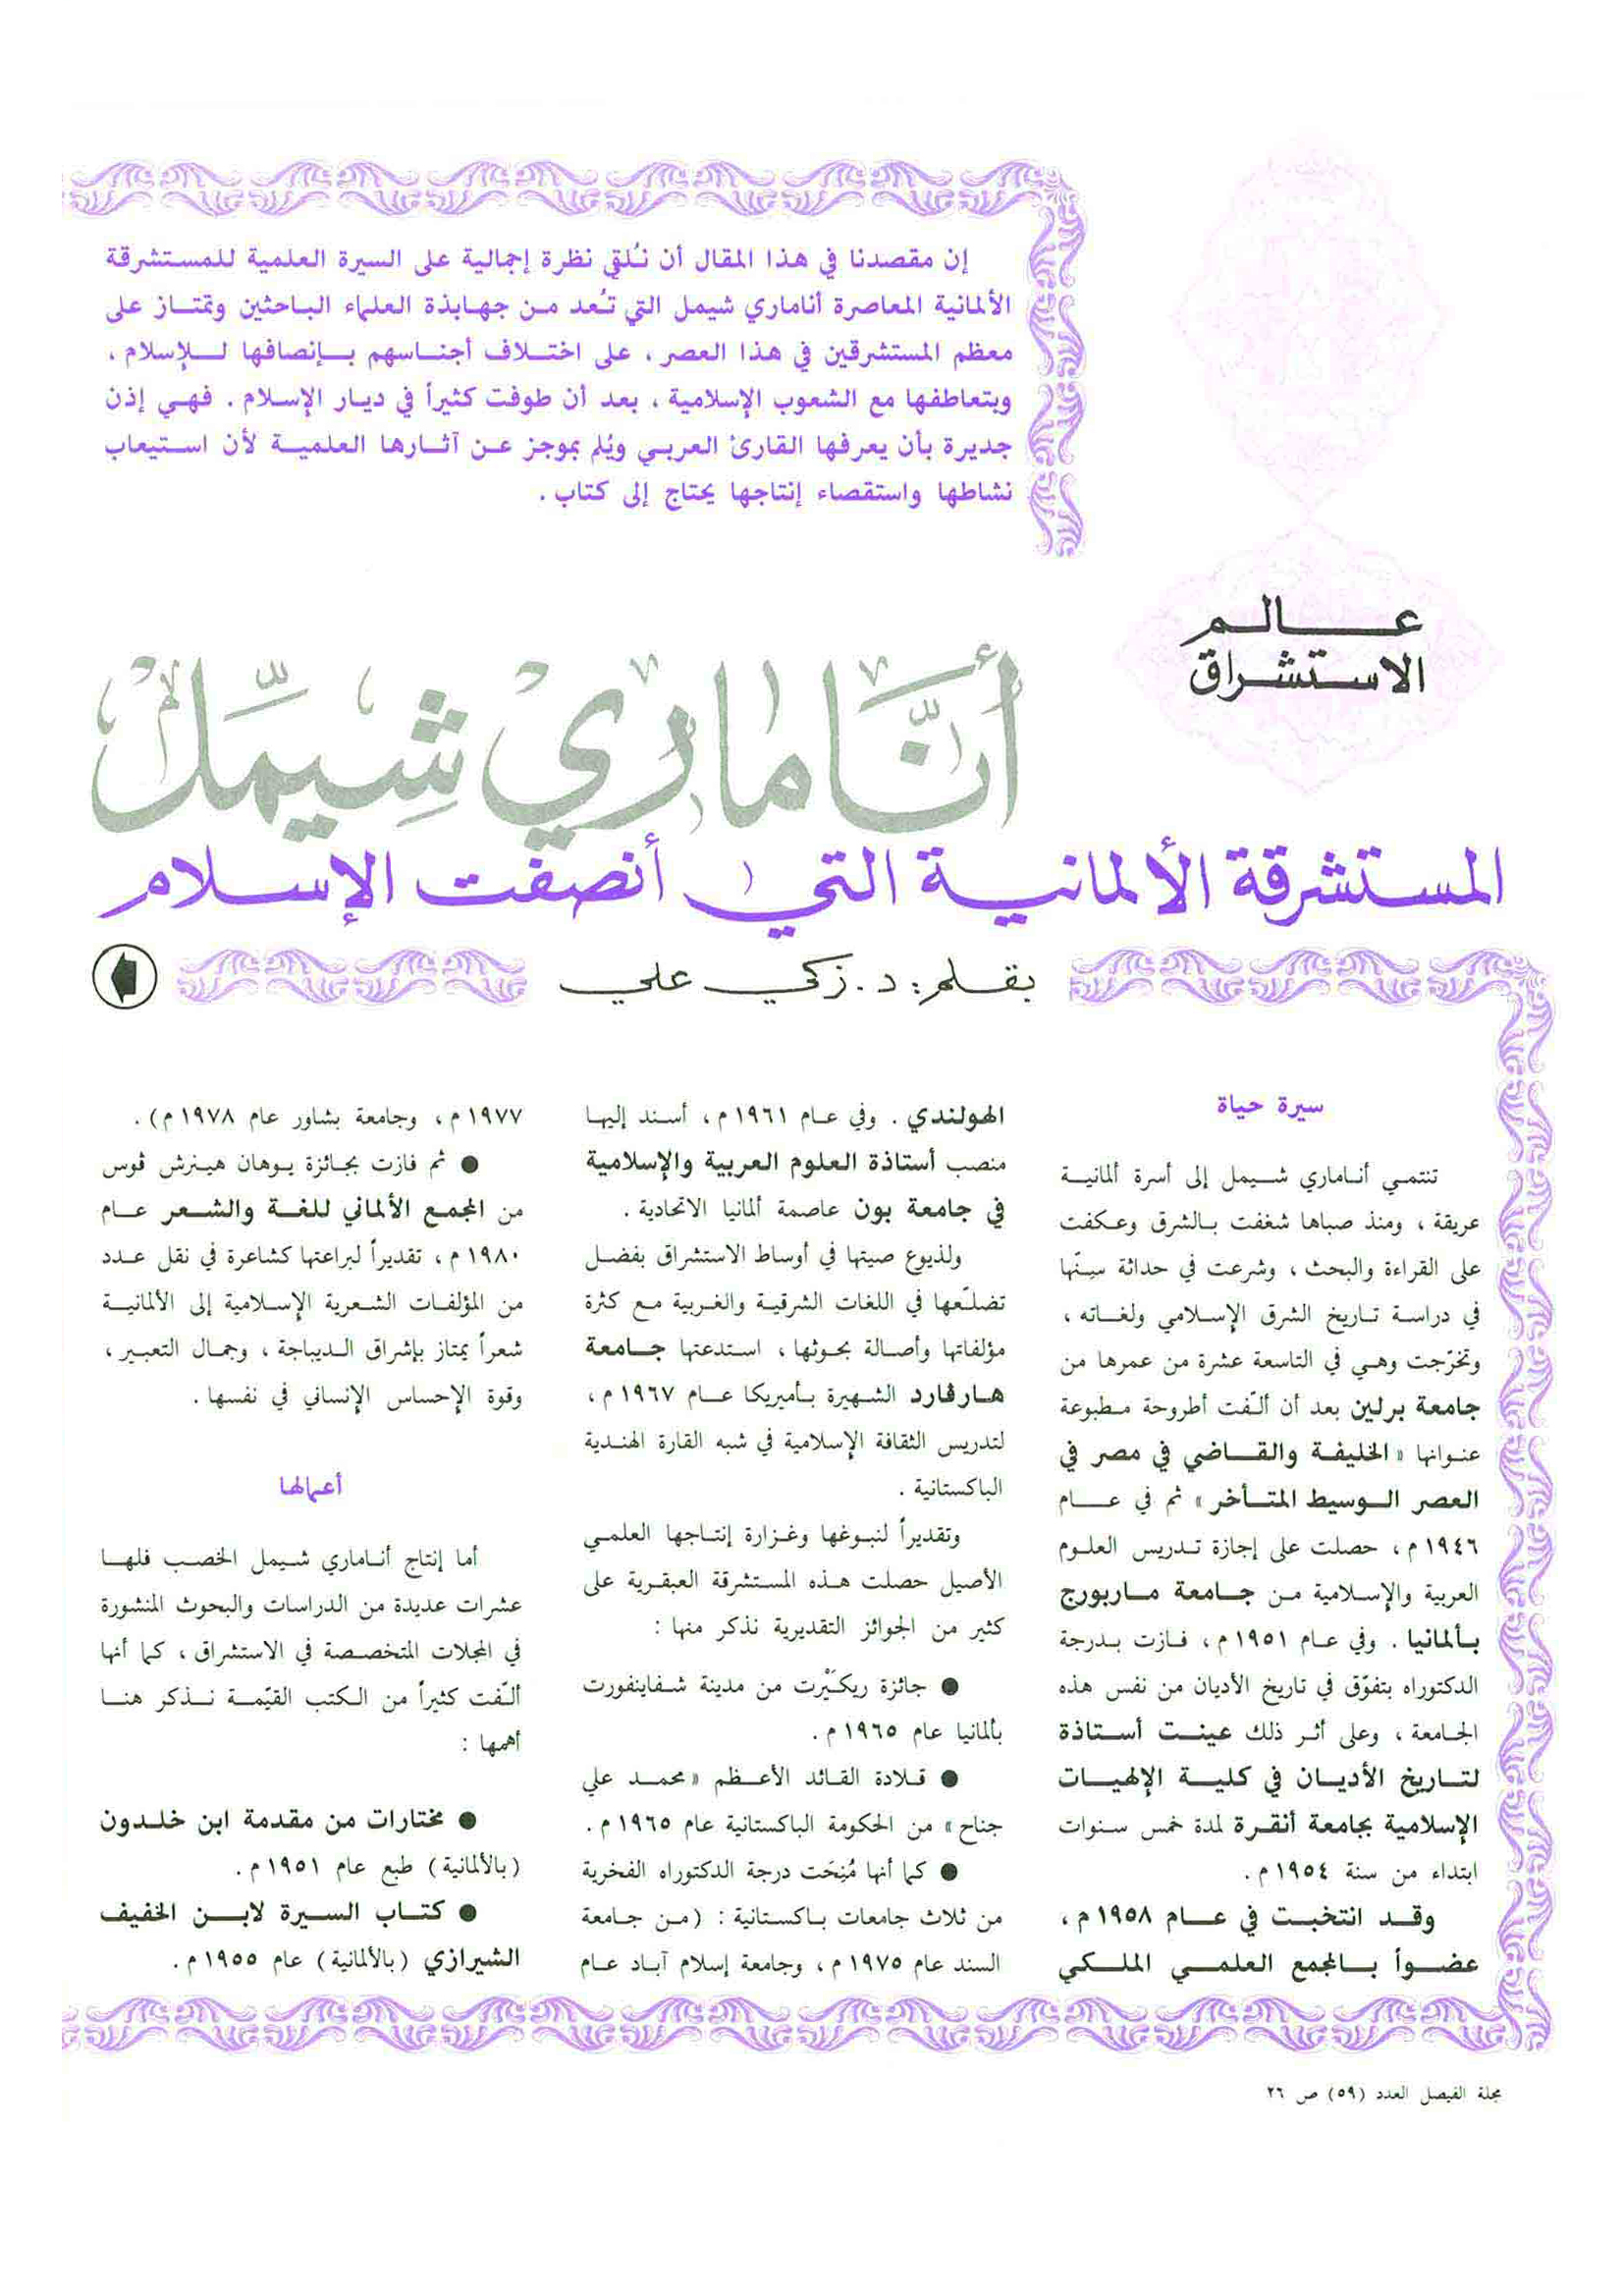 إن مقصدنا في هذا المقال أن نُلقي نظرة إجمالية على السيرة العلمية للمستشرقة
الألمانية المعاصرة أناماري شيمل التي تُعد من جهابذة العلماء الباحثين وتمتاز على
معظم المستشرقين في هذا العصر ، على اختلاف أجناسهم بإنصافها للإسلام ،
وبتعاطفها مع الشعوب الإسلامية ، بعد أن طوفت كثيراً في ديار الإسلام . فهي إذن
جديرة بأن يعرفها القارئ العربي ويُلم بموجز عن آثارها العلمية لأن استيعاب
نشاطها واستقصاء إنتاجها يحتاج إلى كتاب .
عالم
الاستشراق
أنَّا ماري شيمّل
المستشرقة الألمانية التي أنصفت الإسلام
بقلم : د . زكي علي
سيرة حياة
تنتمي أناماري شيمل إلى أسرة ألمانية
عريقة ، ومنذ صباها شغفت بالشرق وعكفت
على القراءة والبحث ، وشرعت في حداثة سِنّها
في دراسة تاريخ الشرق الإسلامي ولغاته ،
وتخرّجت وهي في التاسعة عشرة من عمرها من
جامعة برلين بعد أن ألّفت أطروحة مطبوعة
عنوانها « الخليفة والقاضي في مصر في
العصر الوسيط المتأخر » ثم في عام
١٩٤٦ م ، حصلت على إجازة تدريس العلوم
العربية والإسلامية من جامعة ماربورج
بألمانيا . وفي عام ١٩٥١ م ، فازت بدرجة
الدكتوراه بتفوّق في تاريخ الأديان من نفس هذه
الجامعة ، وعلى أثر ذلك عينت أستاذة
لتاريخ الأديان في كلية الإلهيات
الإسلامية بجامعة أنقرة لمدة خمس سنوات
ابتداء من سنة ١٩٥٤ م .
وقد انتخبت في عام ١٩٥٨ م ،
عضواً بالمجمع العلمي الملكي
الهولندي . وفي عام ١٩٦١ م ، أسند إليها
منصب أستاذة العلوم العربية والإسلامية
في جامعة بون عاصمة ألمانيا الاتحادية .
ولذيوع صيتها في أوساط الاستشراق بفضل
تضلّعها في اللغات الشرقية والغربية مع كثرة
مؤلفاتها وأصالة بحوثها ، استدعتها جامعة
هارفارد الشهيرة بأميركا عام ١٩٦٧ م ،
لتدريس الثقافة الإسلامية في شبه القارة الهندية
الباكستانية .
وتقديراً لنبوغها وغزارة إنتاجها العلمي
الأصيل حصلت هذه المستشرقة العبقرية على
كثير من الجوائز التقديرية نذكر منها :
● جائزة ريكَيْرت من مدينة شفاينفورت
بألمانيا عام ١٩٦٥ م .
● قلادة القائد الأعظم « محمد علي
جناح » من الحكومة الباكستانية عام ١٩٦٥ م .
● كما أنها مُنِحَت درجة الدكتوراه الفخرية
من ثلاث جامعات باكستانية : ( من جامعة
السند عام ١٩٧٥ م ، وجامعة إسلام آباد عام
١٩٧٧ م ، وجامعة بشاور عام ١٩٧٨ م ) .
● ثم فازت بجائزة يوهان هينرش ڤوس
من المجمع الألماني للغة والشعر عام
١٩٨٠ م ، تقديراً لبراعتها كشاعرة في نقل عدد
من المؤلفات الشعرية الإسلامية إلى الألمانية
شعراً يمتاز بإشراق الديباجة ، وجمال التعبير ،
وقوة الإحساس الإنساني في نفسها .
أعمالها
أما إنتاج أناماري شيمل الخصب فلها
عشرات عديدة من الدراسات والبحوث المنشورة
في المجلات المتخصصة في الاستشراق ، كما أنها
ألّفت كثيراً من الكتب القيّمة نذكر هنا
أهمها :
● مختارات من مقدمة ابن خلدون
( بالألمانية ) طبع عام ١٩٥١ م .
● كتاب السيرة لابن الخفيف
الشيرازي ( بالألمانية ) عام ١٩٥٥ م .
مجلة الفيصل العدد (٥٩) ص ٢٦